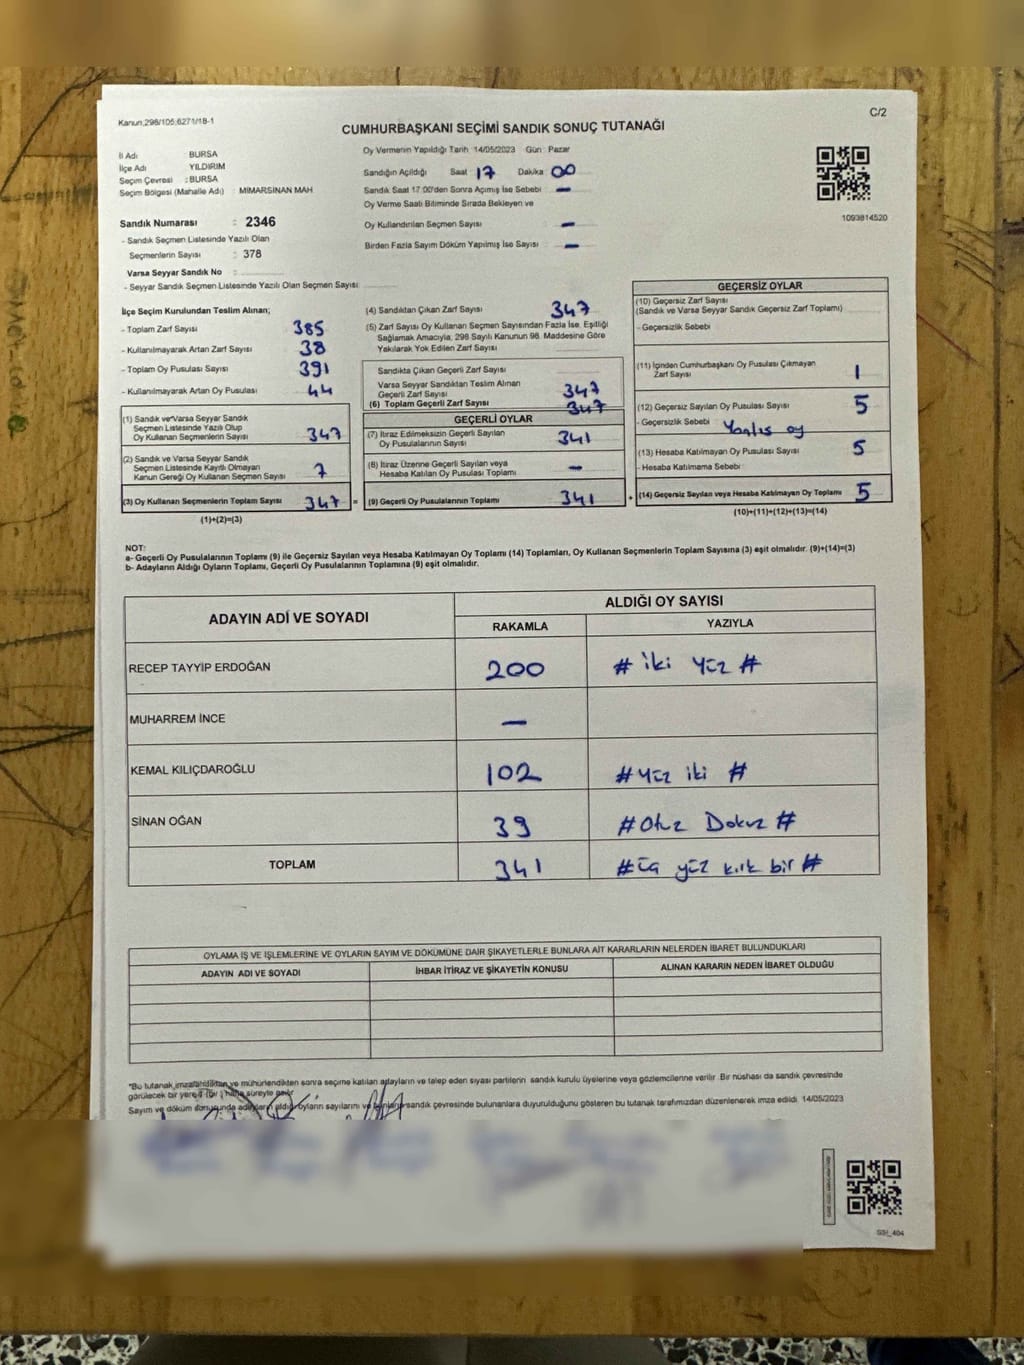 Kanun;298/105;6271/18-1
C/2
CUMHURBAŞKANI SEÇİMİ SANDIK SONUÇ TUTANAĞI
İl Adı BURSA
İlçe Adı YILDIRIM
Seçim Çevresi : BURSA
Seçim Bölgesi (Mahalle Adı) : MİMARSİNAN MAH
Sandık Numarası : 2346
- Sandık Seçmen Listesinde Yazılı Olan
Seçmenlerin Sayısı : 378
Varsa Seyyar Sandık No :
- Seyyar Sandık Seçmen Listesinde Yazılı Olan Seçmen Sayısı:
Oy Vermenin Yapıldığı Tarih 14/05/2023 Gün : Pazar
Sandığın Açıldığı Saat 17 Dakika 00
Sandık Saat 17.00'den Sonra Açımış İse Sebebi —
Oy Verme Saati Bitiminde Sırada Bekleyen ve
Oy Kullandırılan Seçmen Sayısı —
Birden Fazla Sayım Döküm Yapılmış İse Sayısı —
1093814520
İlçe Seçim Kurulundan Teslim Alınan;
- Toplam Zarf Sayısı 385
- Kullanılmayarak Artan Zarf Sayısı 38
- Toplam Oy Pusulası Sayısı 391
- Kullanılmayarak Artan Oy Pusulası 44
(1) Sandık ve Varsa Seyyar Sandık
Seçmen Listesinde Yazılı Olup
Oy Kullanan Seçmenlerin Sayısı 347
(2) Sandık ve Varsa Seyyar Sandık
Seçmen Listesinde Kayıtlı Olmayan
Kanun Gereği Oy Kullanan Seçmen Sayısı 7
(3) Oy Kullanan Seçmenlerin Toplam Sayısı 347 =
(1)+(2)=(3)
(4) Sandıktan Çıkan Zarf Sayısı 347
(5) Zarf Sayısı Oy Kullanan Seçmen Sayısından Fazla İse, Eşitliği
Sağlamak Amacıyla, 298 Sayılı Kanunun 98. Maddesine Göre
Yakılarak Yok Edilen Zarf Sayısı
Sandıkta Çıkan Geçerli Zarf Sayısı
Varsa Seyyar Sandıktan Teslim Alınan
Geçerli Zarf Sayısı 347
(6) Toplam Geçerli Zarf Sayısı 347
GEÇERLİ OYLAR
(7) İtiraz Edilmeksizin Geçerli Sayılan
Oy Pusulalarının Sayısı 341
(8) İtiraz Üzerine Geçerli Sayılan veya
Hesaba Katılan Oy Pusulası Toplamı —
(9) Geçerli Oy Pusulalarının Toplamı 341 +
GEÇERSİZ OYLAR
(10) Geçersiz Zarf Sayısı
(Sandık ve Varsa Seyyar Sandık Geçersiz Zarf Toplamı)
- Geçersizlik Sebebi
(11) İçinden Cumhurbaşkanı Oy Pusulası Çıkmayan
Zarf Sayısı 1
(12) Geçersiz Sayılan Oy Pusulası Sayısı 5
- Geçersizlik Sebebi Yanlış oy
(13) Hesaba Katılmayan Oy Pusulası Sayısı 5
- Hesaba Katılmama Sebebi
(14) Geçersiz Sayılan veya Hesaba Katılmayan Oy Toplamı 5
(10)+(11)+(12)+(13)=(14)
NOT:
a- Geçerli Oy Pusulalarının Toplamı (9) ile Geçersiz Sayılan veya Hesaba Katılmayan Oy Toplamı (14) Toplamları, Oy Kullanan Seçmenlerin Toplam Sayısına (3) eşit olmalıdır. (9)+(14)=(3)
b- Adayların Aldığı Oyların Toplamı, Geçerli Oy Pusulalarının Toplamına (9) eşit olmalıdır.
ADAYIN ADI VE SOYADI ALDIĞI OY SAYISI
RAKAMLA YAZIYLA
RECEP TAYYİP ERDOĞAN 200 # iki yüz #
MUHARREM İNCE —
KEMAL KILIÇDAROĞLU 102 # Yüz iki #
SİNAN OĞAN 39 # Otuz Dokuz #
TOPLAM 341 # üç yüz kırk bir #
OYLAMA İŞ VE İŞLEMLERİNE VE OYLARIN SAYIM VE DÖKÜMÜNE DAİR ŞİKAYETLERLE BUNLARA AİT KARARLARIN NELERDEN İBARET BULUNDUKLARI
ADAYIN ADI VE SOYADI İHBAR İTİRAZ VE ŞİKAYETİN KONUSU ALINAN KARARIN NEDEN İBARET OLDUĞU
"Bu tutanak imzalandıktan ve mühürlendikten sonra seçime katılan adayların ve talep eden siyasi partilerin sandık kurulu üyelerine veya gözlemcilerine verilir. Bir nüshası da sandık çevresinde
görülecek bir yere 1 (bir) hafta süreyle asılır
Sayım ve döküm sonucunda adayların aldığı oyların sayılarını ve sandık çevresinde bulunanlara duyurulduğunu gösteren bu tutanak tarafımızdan düzenlenerek imza edildi. 14/05/2023
SSI_404